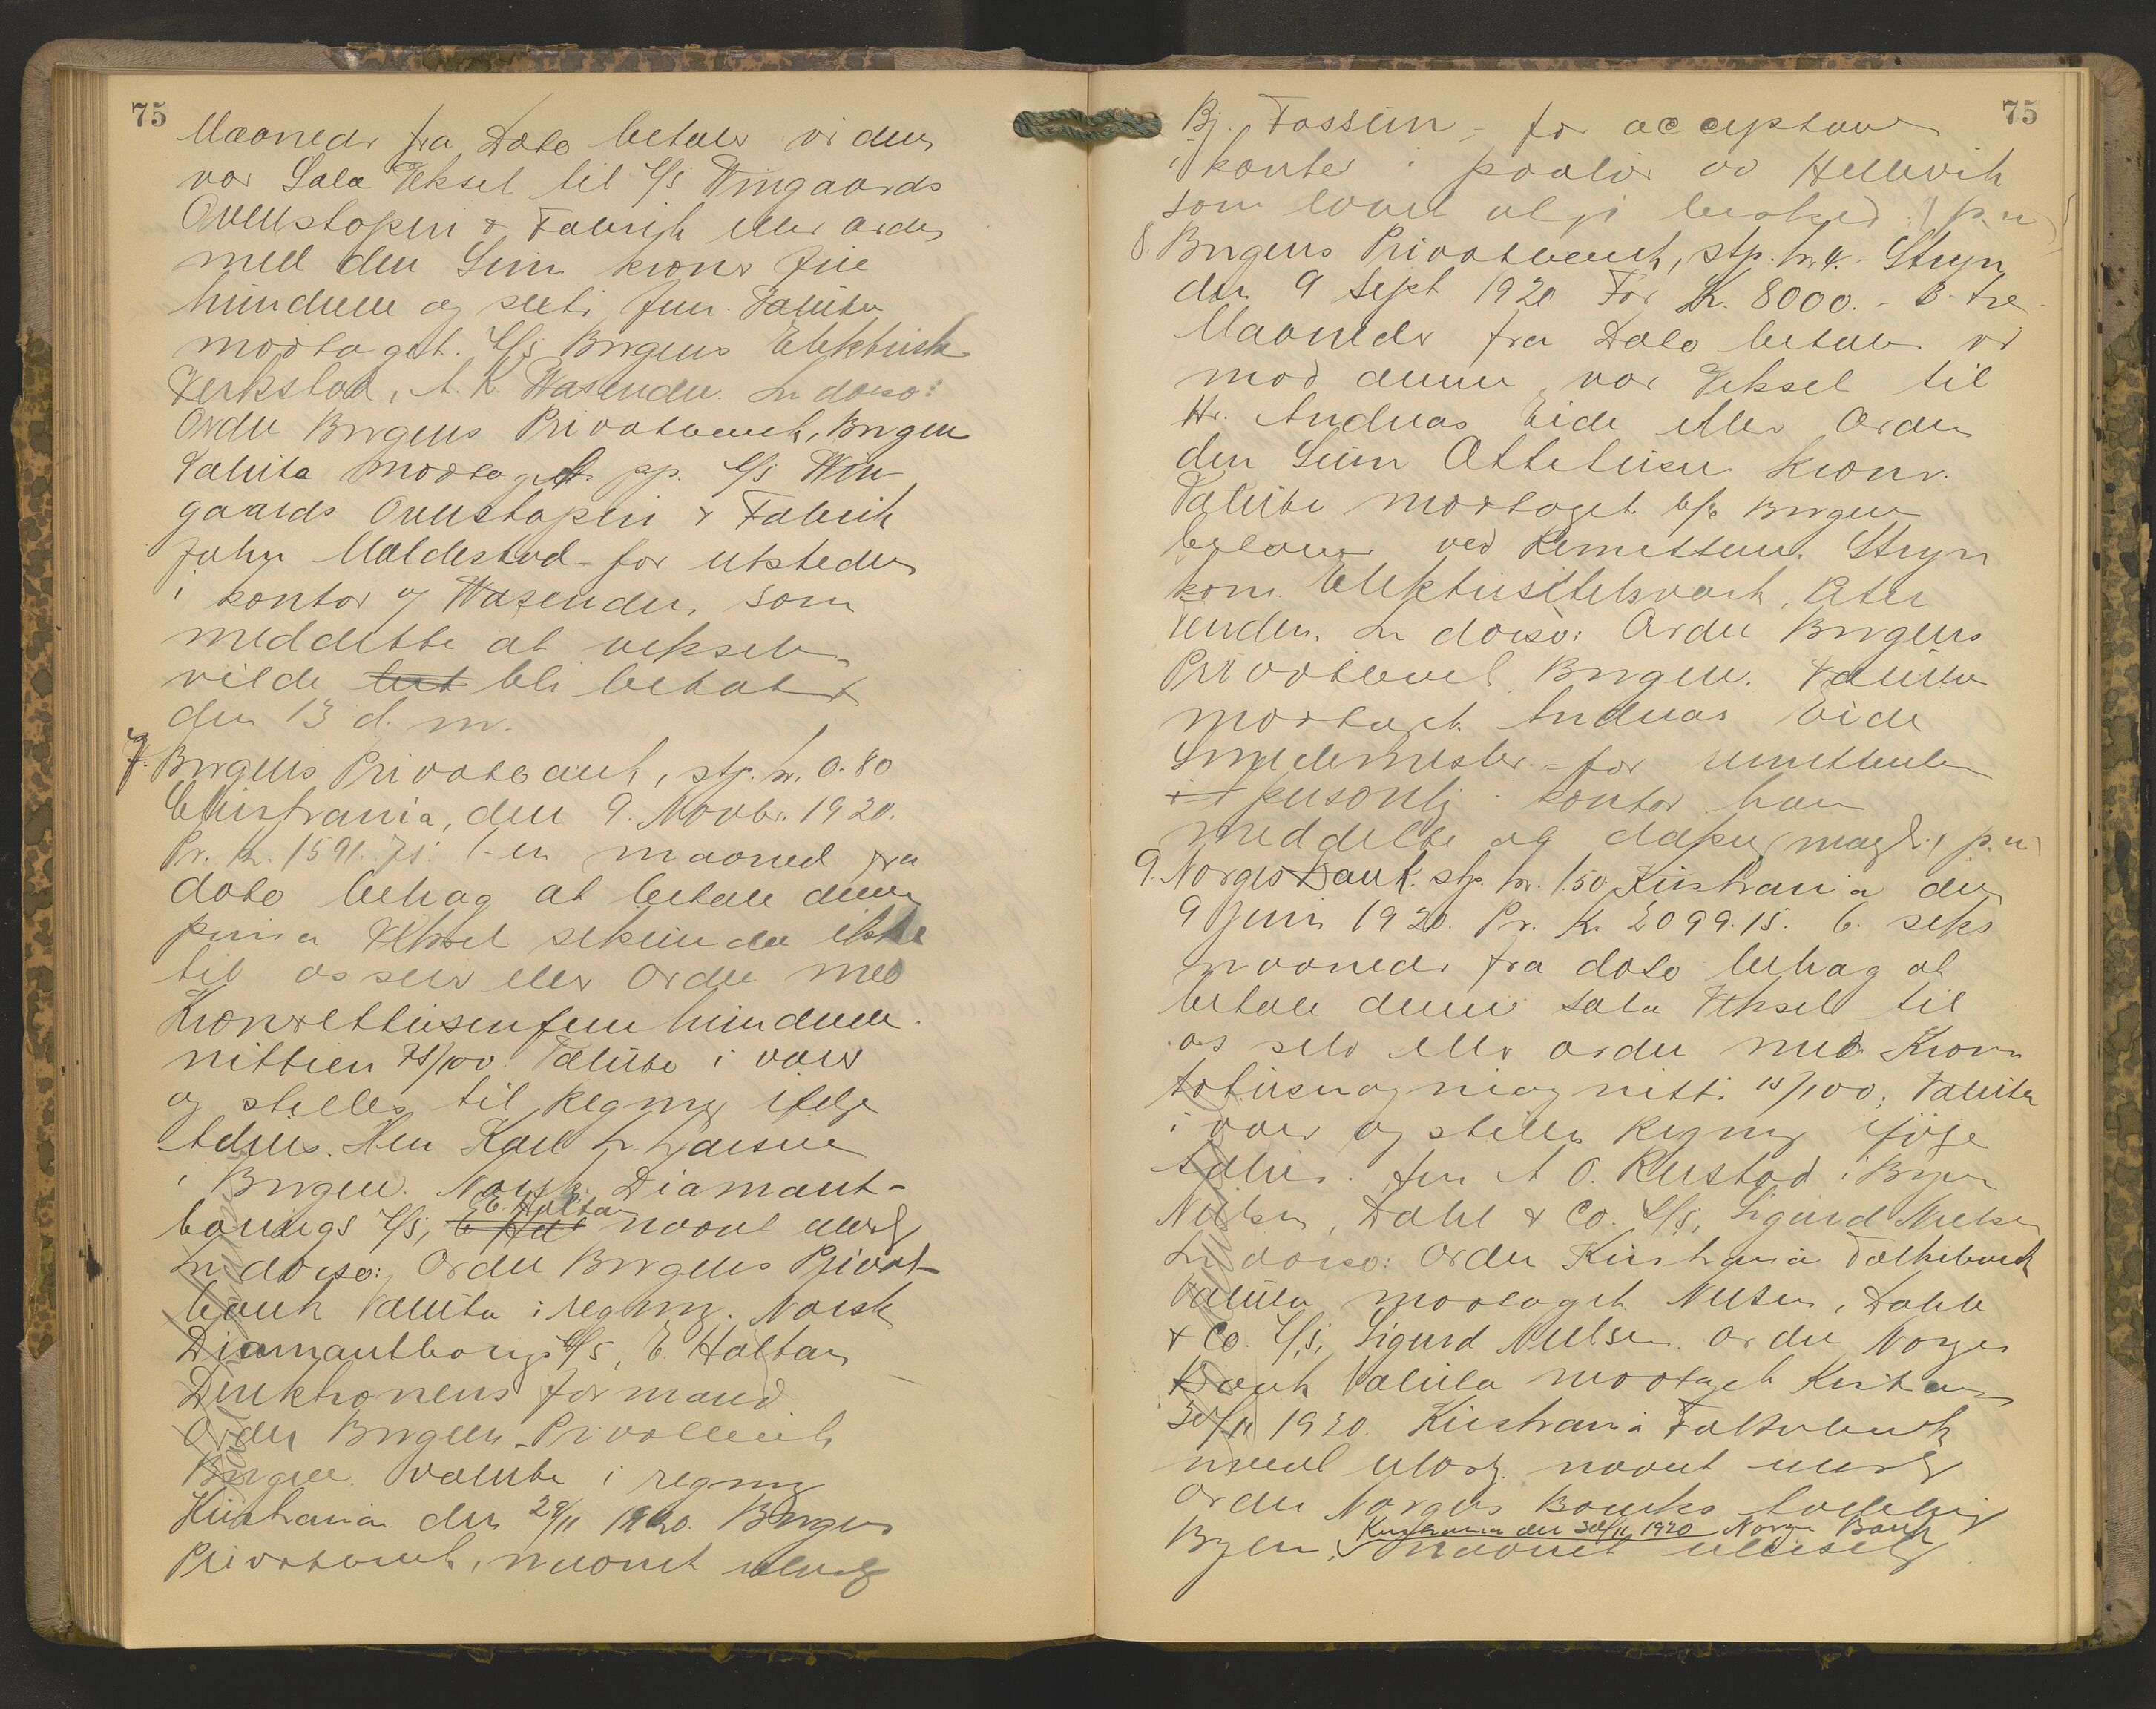 75
Maaneder fra Dato betaler vi denne
vor Sola Veksel til A/S Wingaards
Ovnstøperi & Fabrik eller ordre
med den Sum kroner fire
hundrede og seksti fem. Valuta
mottaget. A/S Bergens Elektriske
Verksted, A. K. Wasenden. In dorso:
Ordre Bergens Privatbank, Bergen
Valuta mottaget pp. A/S Win
gaards Ovnstøperi & Fabrik
John Maldestad - for utsteder
i kontor og Wasenden som
meddelte at vekselen
vilde bet bli betalt
den 13 d. m.
7. Bergens Privatbank, stp. kr. 0.80
Christiania, den 9. Novbr. 1920.
Pr. Kr. 1591.75. 1 - en maaned fra
dato behag at betale denne
prima Veksel sekunda ikke
til os selv eller Ordre med
Kroner ettusen fem hundrede
nittien 75/100. Valuta i varer
og stilles til Regning ifølge
Advis. Herr Karl L. Larsen
i Bergen. Norsk Diamant-
E. Holtan
borings A/S, E Hol navnet ulæsel
In dorso: Ordre Bergens Privat-
bank Valuta i regning. Norsk
Diamantboring A/S, E. Holtan
Direktionens formand
Ordre Bergens Privatbank
Bergen. Valuta i regning
Kristiania den 29/11 1920. Bergens
Privatbank, navnet ulæselg
75
Bj. Fossem - for acceptanten
i kontor i paaløb av Hellevik
som lovet at gi besked. (p.n)
8. Bergens Privatbank, stp. kr. 4. - Stryn
den 9 Sept 1920 For Kr. 8000. - 3 - tre -
Maaneder fra Dato betaler vi
mod denne vor Veksel til
Hr. Andreas Eide eller Ordre
den Sum Ottetusen Kroner.
Valuta mottaget. Bergen
ved Remittenten. Stryn
kom. Elektrisitetsverk, Peter
Venden. In dorso: Ordre Bergens
Privatbank Bergen. Valuta
mottaget. Andreas Eide
Smedemester. - for remittenten
personlig i kontor han
meddelte (p.n)
9. Norges Bank. stp. kr. 1.50. Kristiania den
9 Juni 1920. Pr. Kr. 2099.15. 6. seks
maaneder fra dato behag at
betale denne Sola Veksel til
os selv eller ordre med Kroner
totusen og niognitti 15/100; Valuta
i varer og stilles Regning ifølge
Advis. Herr A O. Rustad i Bergen
Nielsen, Dahl & Co. A/S, Sigurd Nielsen
In dorso: Ordre Kristiania Folkebank
Valuta mottaget. Nielsen, Dahl
& Co. A/S, Sigurd Nielsen. Ordre Norges
Bank Valuta mottaget Kristiania
30/11 1920. Kristiania Folkebank
navnet ulæselg
Ordre Norges Banks avdeling
Kristiania den 30/11 1920 Norges Bank
Bergen, navnet ulæselg